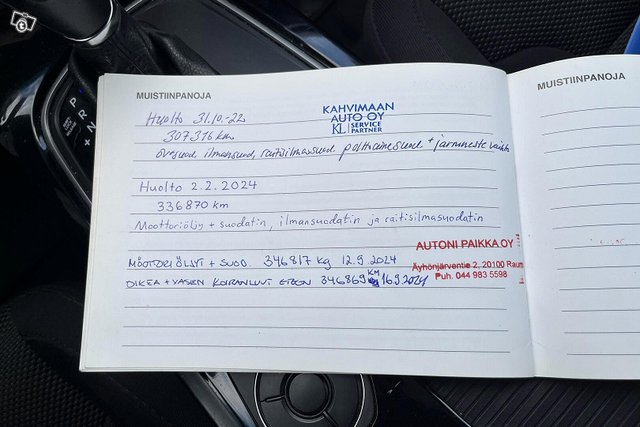 MUISTIINPANOJA
Huolto 31.10.22
307316 km
ilmansuod, raitisilmasuod polttoainesuod + jarruneste vaihto
KAHVIMAAN
AUTO OY
KL SERVICE
PARTNER
Huolto 2.2.2024
336870 km
Moottoriöljy + suodatin, ilmansuodatin ja raitisilmasuodatin
MOOTTORIÖLJYT + SUOD. 346817 kg 12.9.2024
OIKEA + VASEN KOIRANLUUT ETEEN 346869 KM 16.9.2024
AUTONI PAIKKA OY
Äyhönjärventie 2, 20100 Raum
Puh. 044 983 5598
MUISTIINPANOJA
P
R
N
+